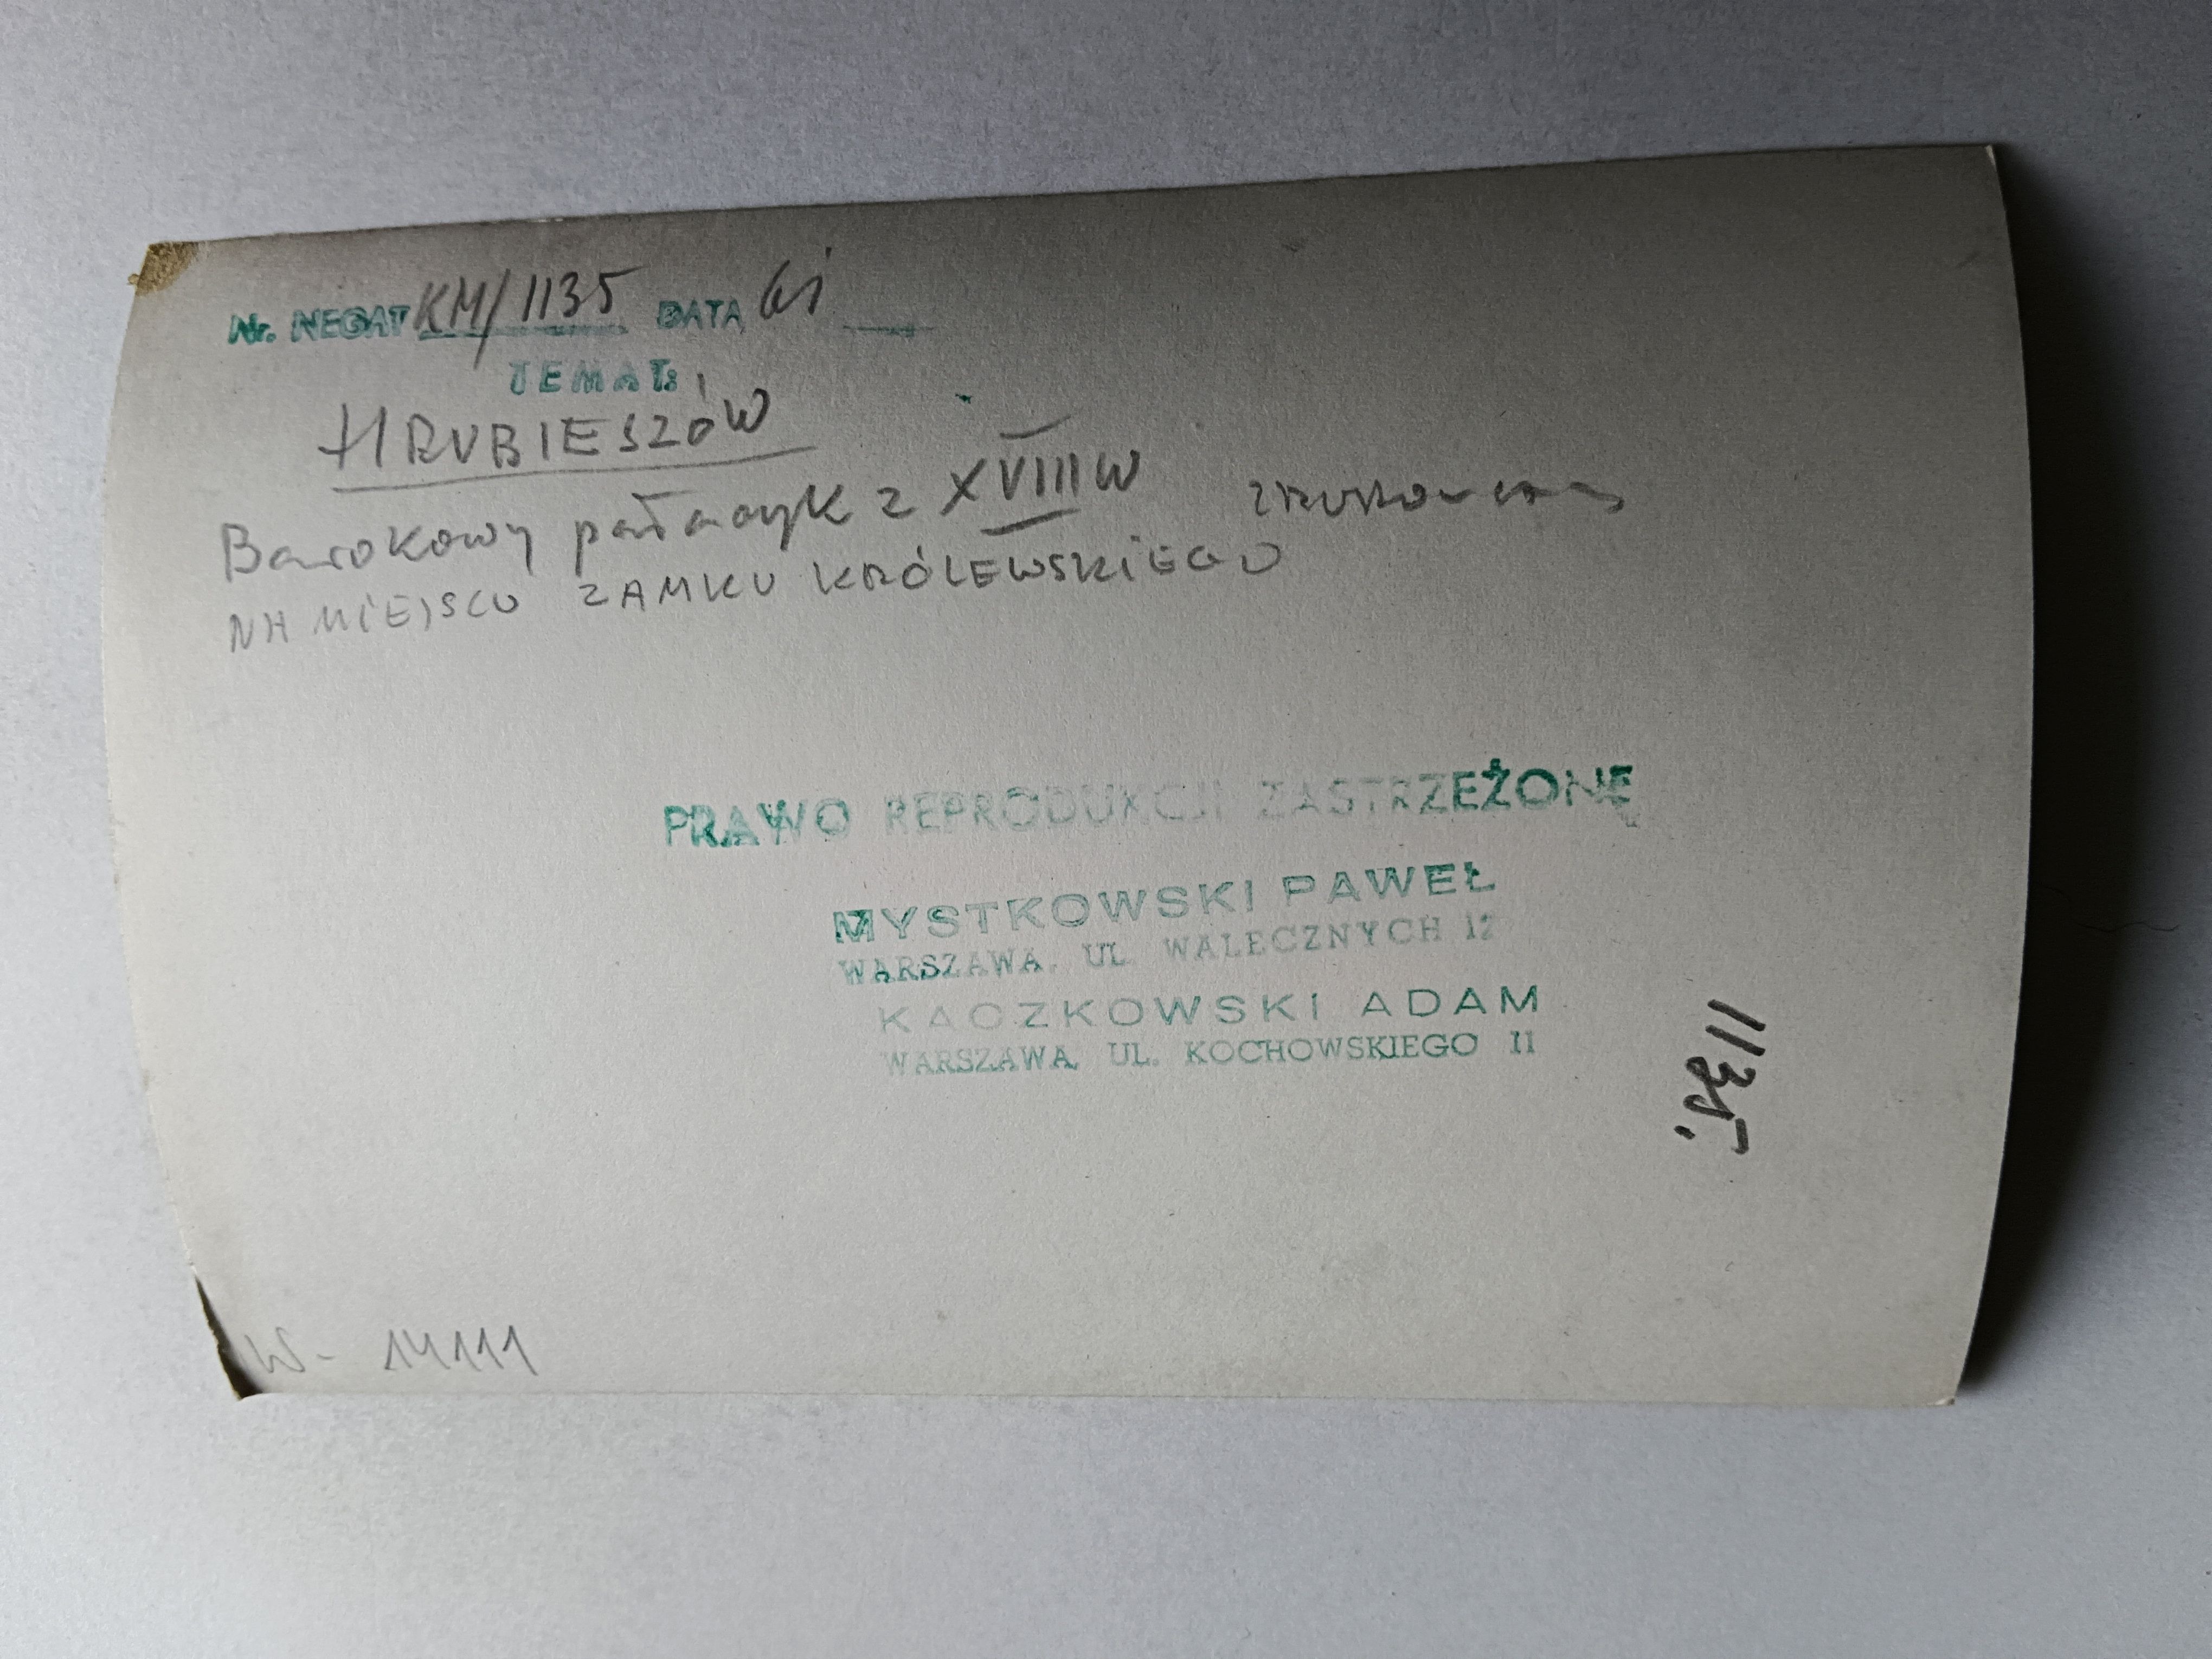 Nr. NEGAT KM/1135 DATA 61
TEMAT:
HRUBIESZÓW
Barokowy pałacyk z XVIII w
NA MIEJSCU ZAMKU KRÓLEWSKIEGO
PRAWO REPRODUKCJI ZASTRZEŻONE
MYSTKOWSKI PAWEŁ
WARSZAWA, UL. WALECZNYCH 12
KACZKOWSKI ADAM
WARSZAWA, UL. KOCHOWSKIEGO 11
1135.
W- 14111